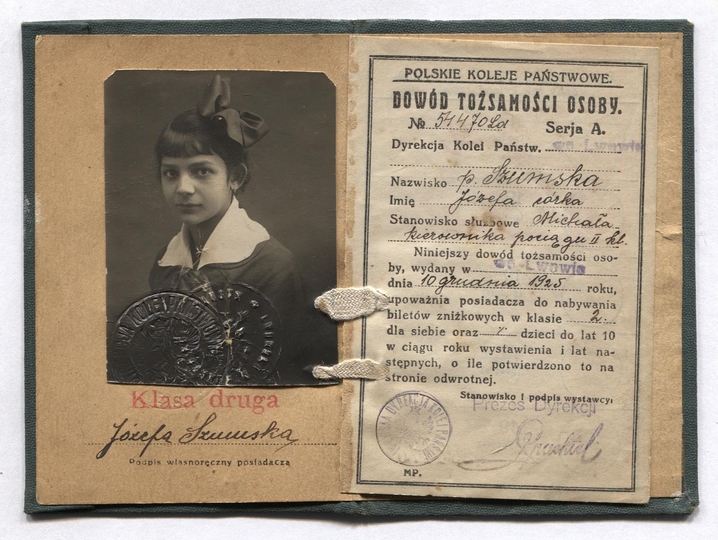 Klasa druga
Józefa Szumska
Podpis własnoręczny posiadacza
POLSKIE KOLEJE PAŃSTWOWE.
DOWÓD TOŻSAMOŚCI OSOBY.
№ 51470Ld Serja A.
Dyrekcja Kolei Państw. we Lwowie
Nazwisko p. Szumska
Imię Józefa córka
Stanowisko służbowe Michała
kierownika pociągu II kl.
Niniejszy dowód tożsamości oso-
by, wydany w we Lwowie
dnia 10 grudnia 1925 roku,
upoważnia posiadacza do nabywania
biletów zniżkowych w klasie 2.
dla siebie oraz dzieci do lat 10
w ciągu roku wystawienia i lat na-
stępnych, o ile potwierdzono to na
stronie odwrotnej.
Stanowisko i podpis wystawcy:
Prezes Dyrekcji
MP.